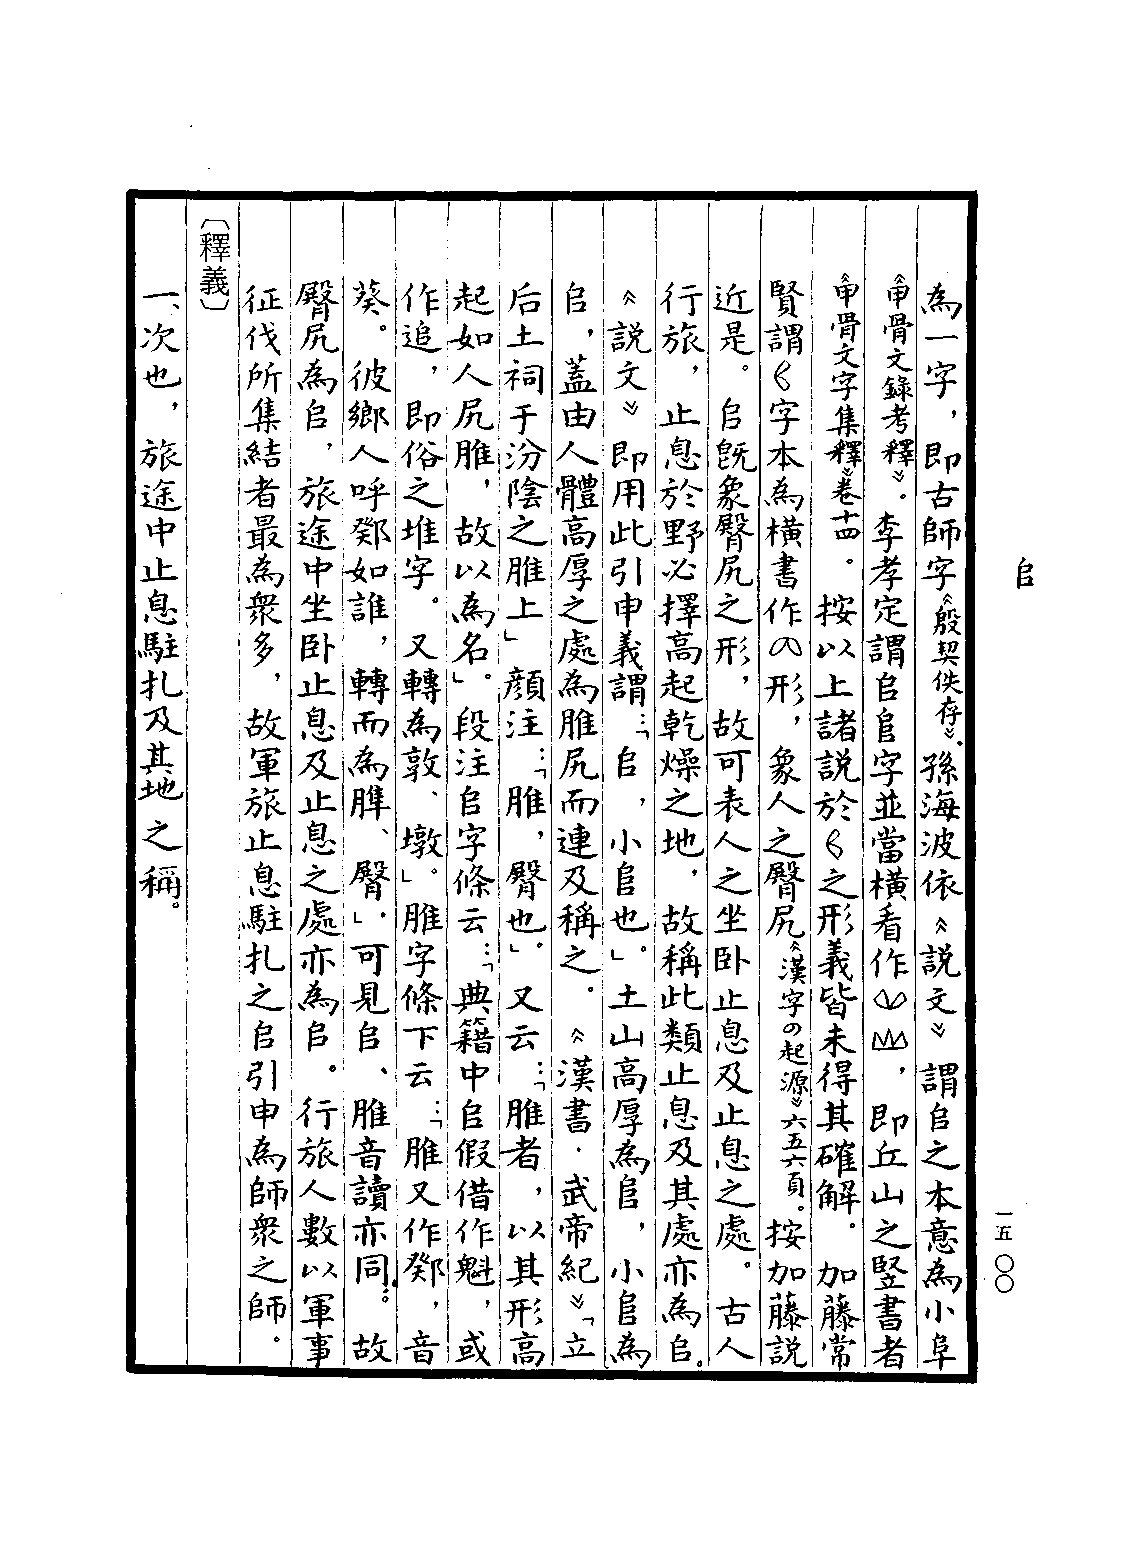 𠂤
一五〇〇
為一字，即古師字《殷契佚存》。孫海波依《說文》謂𠂤之本意為小阜
《甲骨文錄考釋》。李孝定謂𠂤𨸏字並當橫看作，即丘山之竪書者
《甲骨文字集釋》卷十四。按以上諸說於之形義皆未得其確解。加藤常
賢謂字本為橫書作形，象人之臀尻《漢字の起源》六五六頁。按加藤說
近是。𠂤既象臀尻之形，故可表人之坐卧止息及止息之處。古人
行旅，止息於野必擇高起乾燥之地，故稱此類止息及其處亦為𠂤。
《說文》即用此引申義謂：「𠂤，小𨸏也。」土山高厚為𨸏，小𨸏為
𠂤，蓋由人體高厚之處為脽尻而連及稱之。《漢書·武帝紀》「立
后土祠于汾陰之脽上」顏注：「脽，臀也」。又云：「脽者，以其形高
起如人尻脽，故以為名」。段注𠂤字條云：「典籍中𠂤假借作魁，或
作追，即俗之堆字。又轉為敦、墩」。脽字條下云：「脽又作鄈，音
葵。彼鄉人呼鄈如誰，轉而為䐁、臀」，可見𠂤、脽音讀亦同。故
臀尻為𠂤，旅途中坐卧止息及止息之處亦為𠂤。行旅人數以軍事
征伐所集結者最為衆多，故軍旅止息駐扎之𠂤引申為師衆之師。
〔釋義〕
一、次也，旅途中止息駐扎及其地之稱。